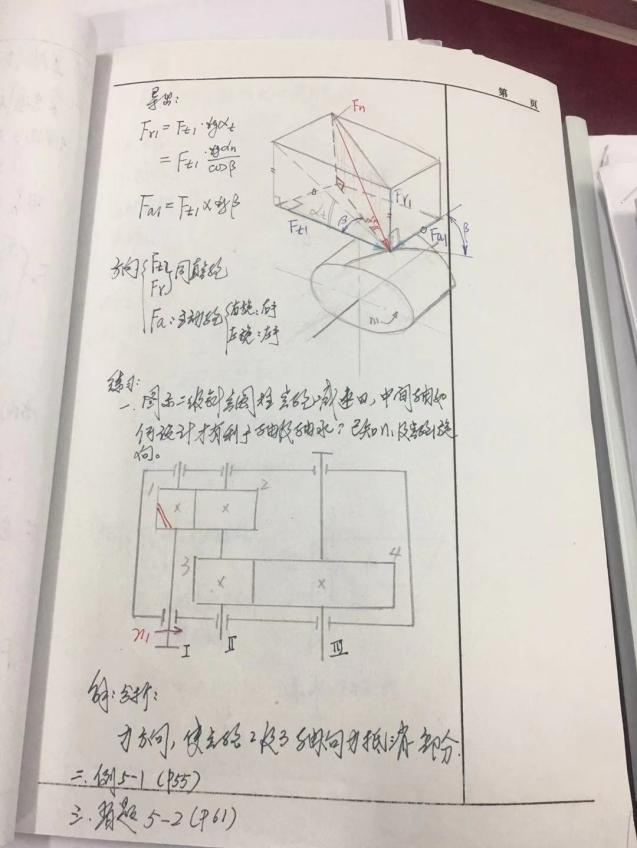 第 页
导出:
Fr1 = Ft1·tgαt
= Ft1 tgαn/cosβ
Fa1 = Ft1 × tgβ
Fn
Fr1
Ft1
Fa1
αt
αn
β
β
n1
方向 Ft 同直齿
Fr
Fa:主动轮 右旋:右手
左旋:左手
练习:
一. 图示二级斜齿圆柱齿轮减速口,中间轴如
何设计才有利于轴及轴承?已知n1及齿轮1旋
向。
1 × × 2
3 × × 4
n1 I II III
解:分析:
力方向,使齿轮2及3轴向力抵消部分.
二. 例5-1 (P55)
三. 习题 5-2 (P61)